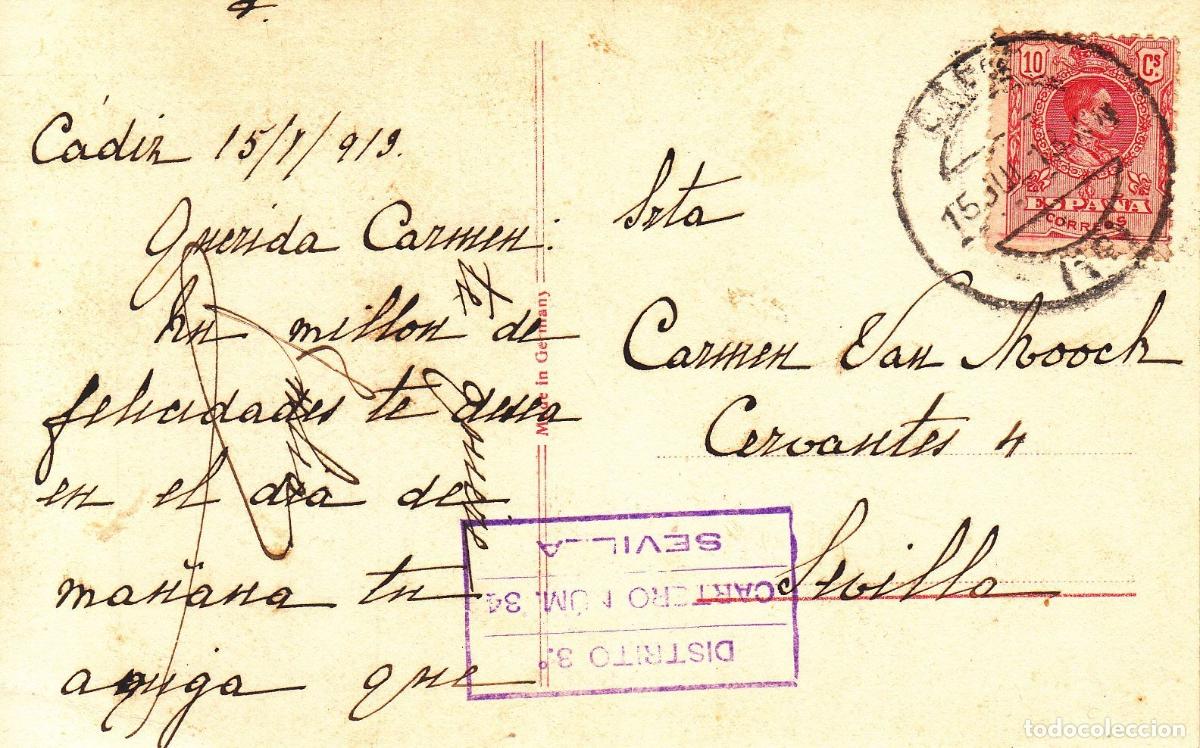 Cádiz 15/7/919.
Querida Carmen:
Un millon de
felicidades te desea
en el dia de
mañana tu
amiga que
Made in Germany
10 Cs
ESPAÑA
CORREOS
15 JUL
Srta
Carmen Van Moock
Cervantes 4
Sevilla
DISTRITO 3.º
CARTERO NÚM. 34
SEVILLA
todocoleccion